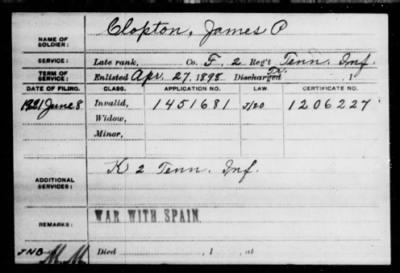 NAME OF SOLDIER: Clopton, James P
SERVICE: Late rank, Co. F, 2 Reg't Tenn. Inf.
TERM OF SERVICE: Enlisted Apr. 27, 1898. Discharged , 1
DATE OF FILING. CLASS. APPLICATION NO. LAW. CERTIFICATE NO.
1921 June 8 Invalid, 1451681 1206227
Widow,
Minor,
ADDITIONAL SERVICES: K 2 Tenn. Inf.
REMARKS: WAR WITH SPAIN.
Died , 1 , at